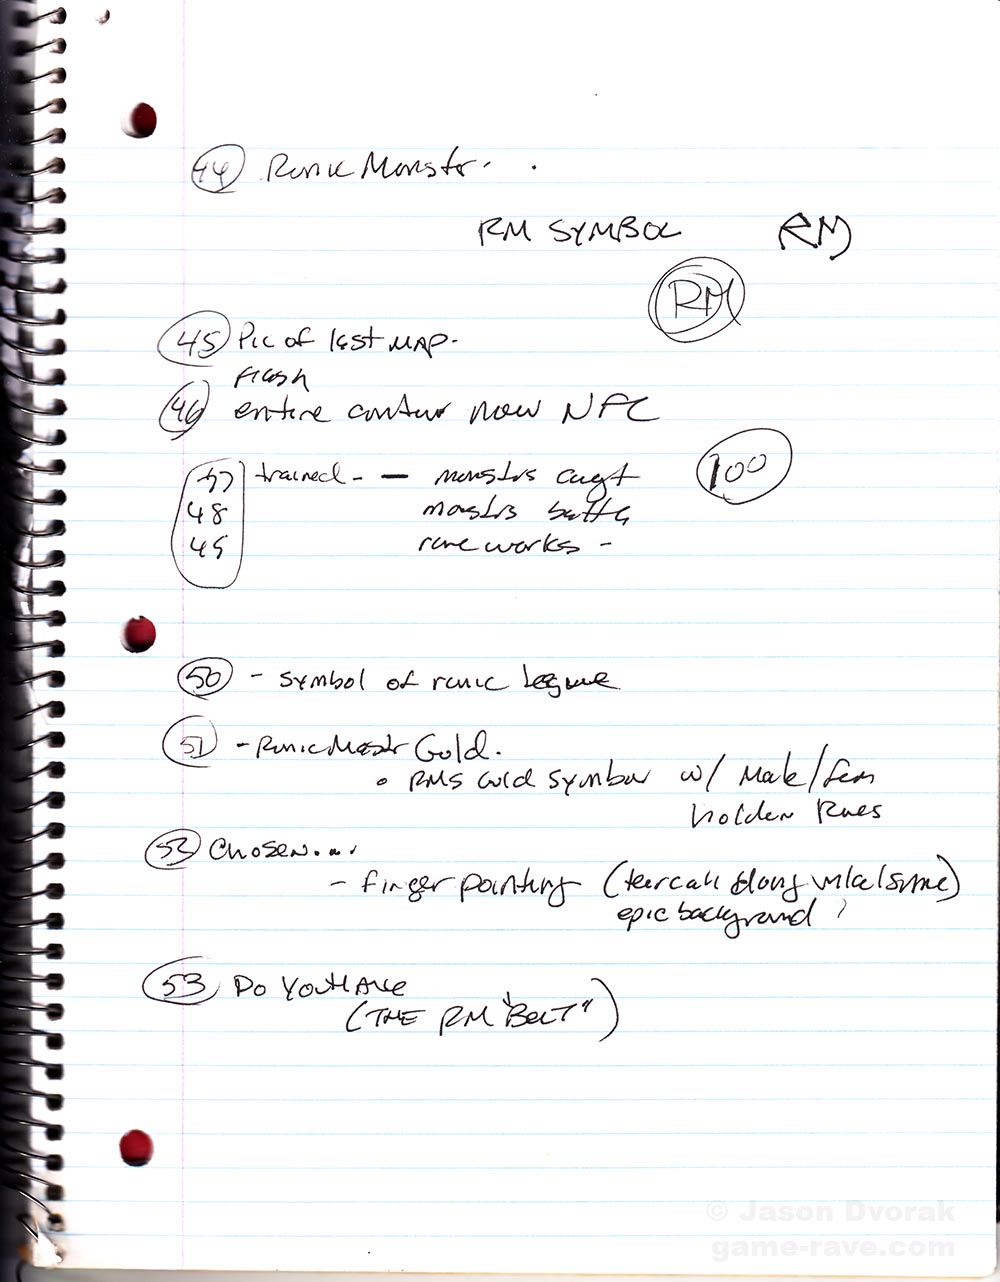 44 Runic Monstr.
RM SYMBOL RM
RM
45 Pic of last MAP.
Flash
46 entire now NFC
47 trained - — monstrs caugt 100
48 monstrs battle
49 rune works -
50 - symbol of runic league
51 - Runic Mastr Gold.
• RMS Gold Symbol w/ Male/fem
holden Runes
52 Chosen...
- finger pointing (
epic background ?
53 Do You HAVE
(THE RM "BELT")
© Jason Dvorak
game-rave.com